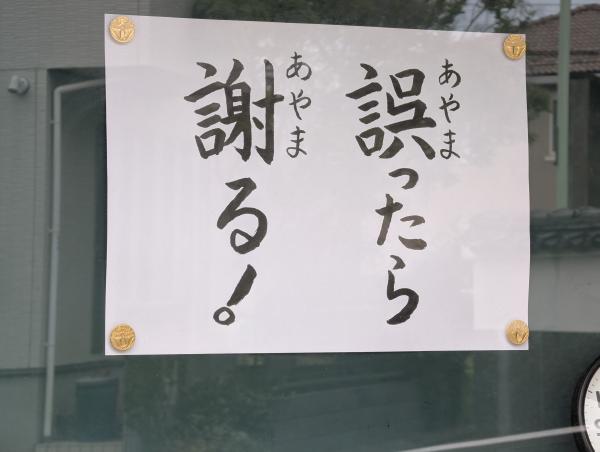 誤ったら
あやま
謝る!
あやま